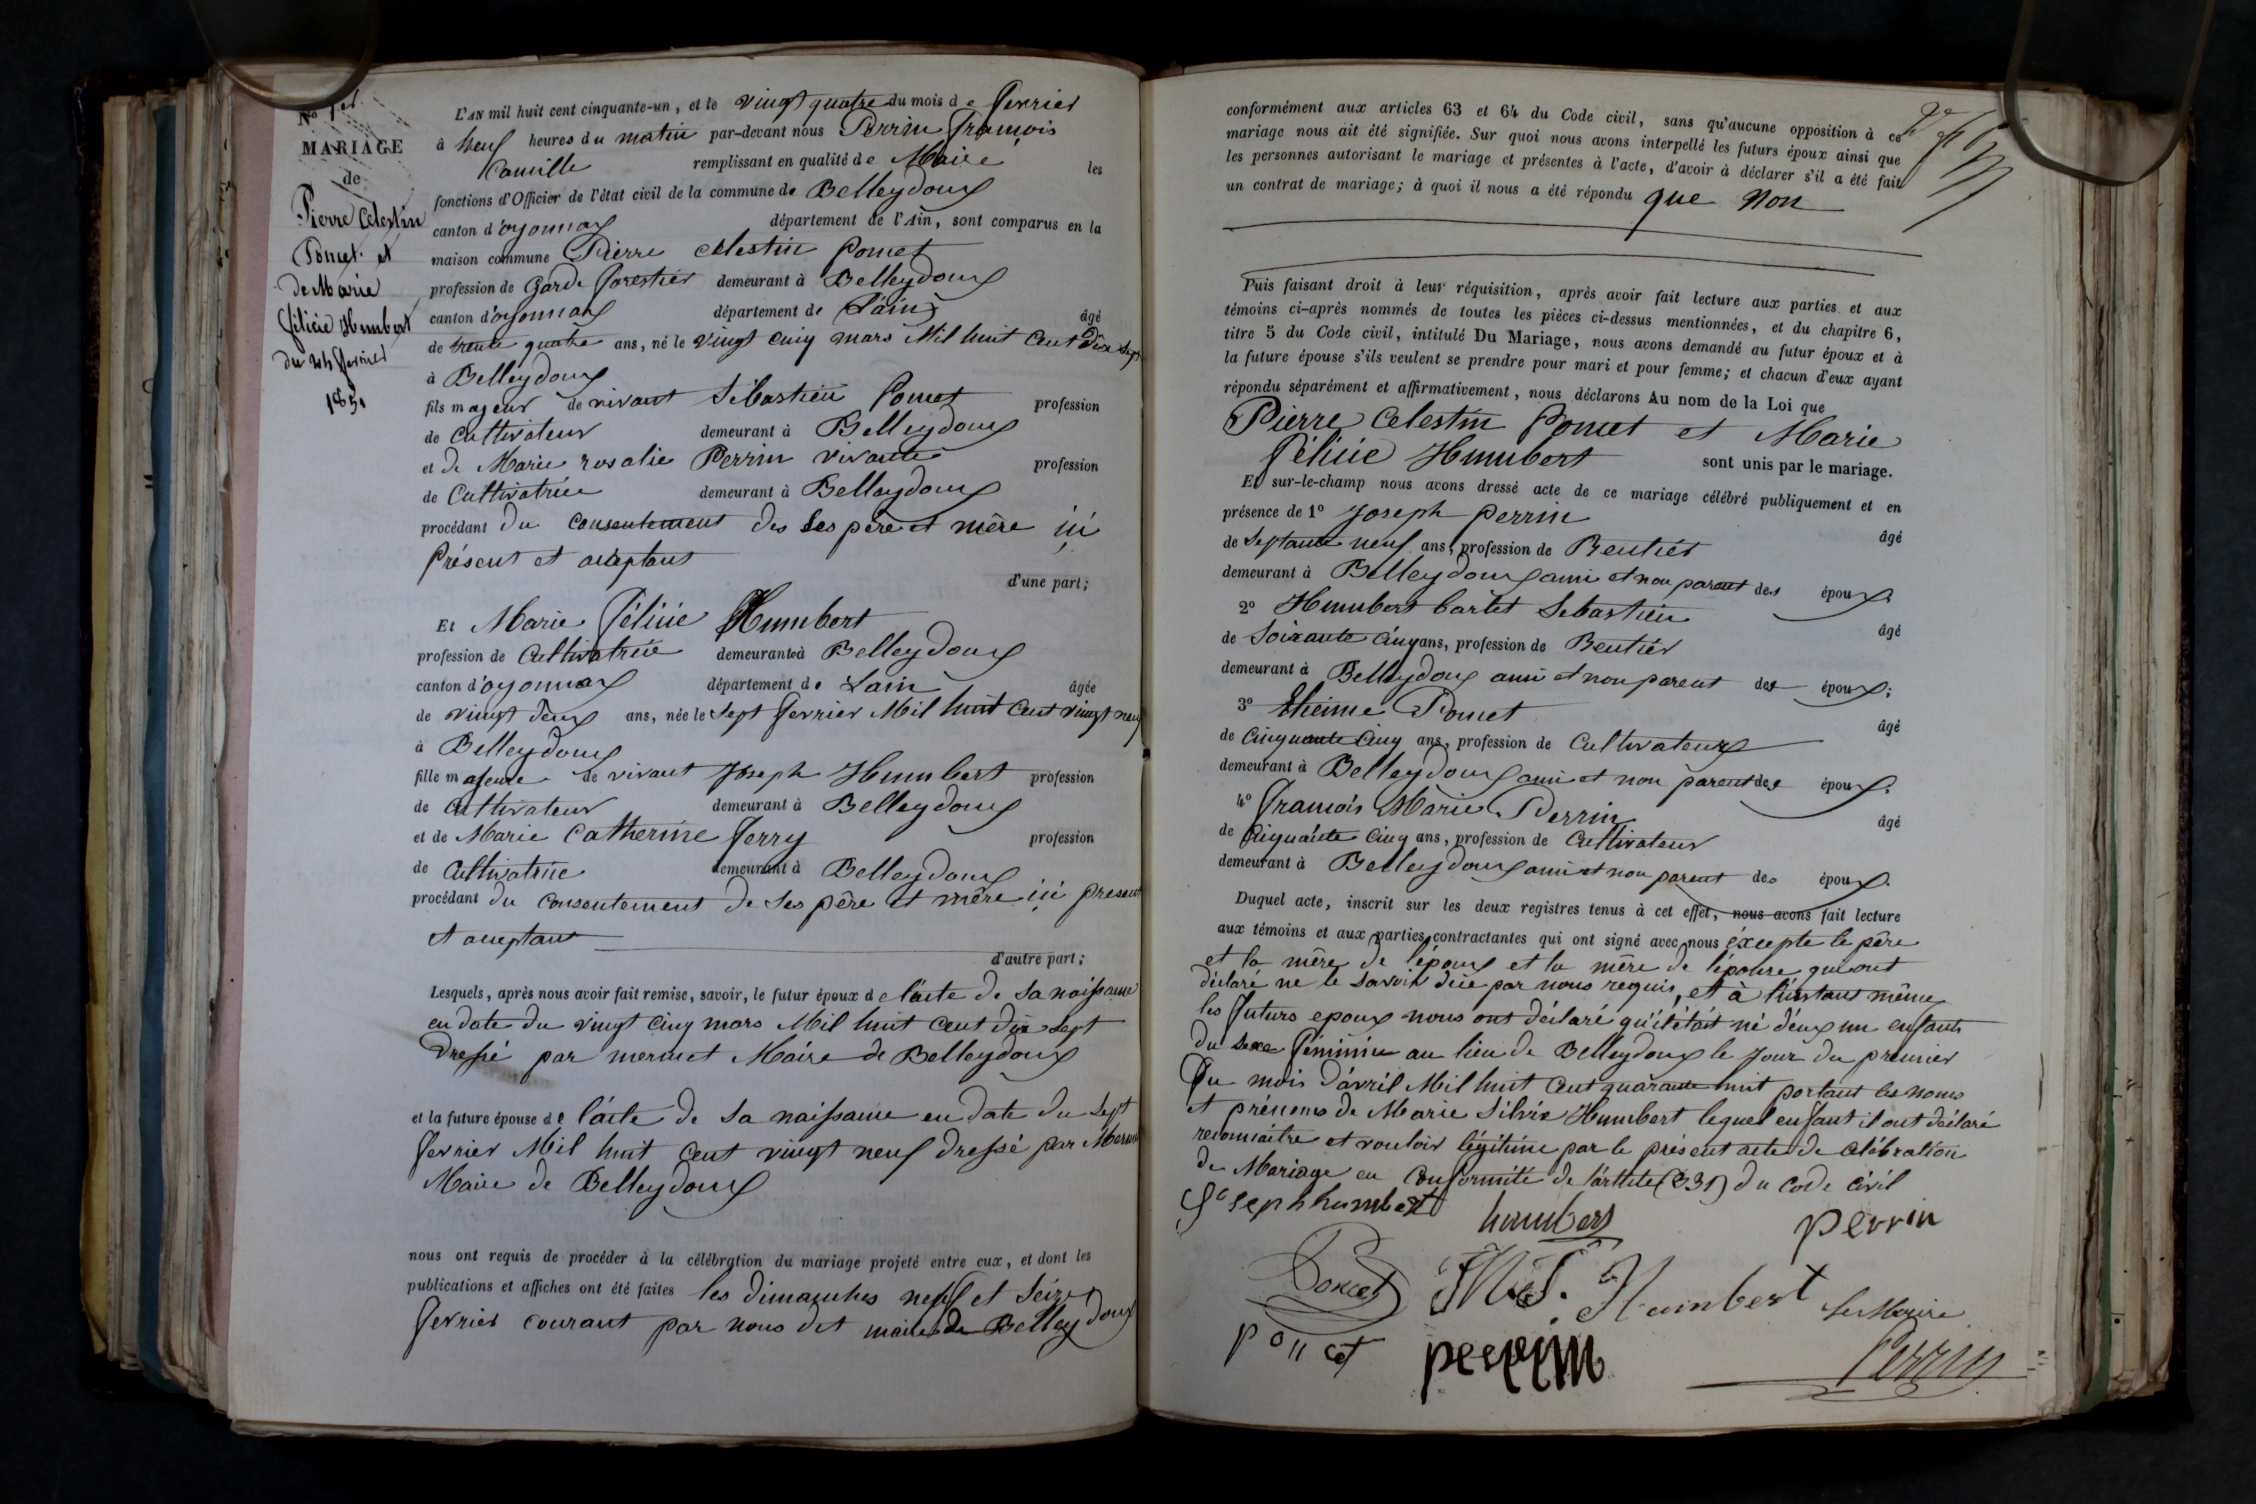 N° 1er
MARIAGE
de
Pierre Celestin
Poncet et
de Marie
félicie Humbert
du 24 fevrier
1851
L'AN mil huit cent cinquante-un, et le vingt quatre du mois de fevrier
à neuf heures du matin par-devant nous Perrin françois
Camille remplissant en qualité de Maire les
fonctions d'Officier de l'état civil de la commune de Belleydoux
canton d'oyonnax département de l'Ain, sont comparus en la
maison commune Pierre celestin Poncet
profession de Garde forestier demeurant à Belleydoux
canton d'oyonnax département de L'ain âgé
de trente quatre ans, né le vingt cinq mars Mil huit Cent Dix sept
à Belleydoux
fils majeur de vivant Sébastien Poncet profession
de Cultivateur demeurant à Belleydoux
et de Marie rosalie Perrin vivante profession
de Cultivatrice demeurant à Belleydoux
procédant du consentement des ses père et mère ici
Présent et acceptant
d'une part;
Et Marie féliciе Humbert
profession de Cultivatrice demeurante à Belleydoux
canton d'oyonnax département de Lain âgée
de vingt deux ans, née le sept fevrier Mil huit Cent vingt neuf
à Belleydoux
fille majeure de vivant Joseph Humbert profession
de Cultivateur demeurant à Belleydoux
et de Marie Catherine ferry profession
de Cultivatrice demeurant à Belleydoux
procédant du consentement de ses père et mère ici present
et acceptant
d'autre part;
Lesquels, après nous avoir fait remise, savoir, le futur époux de l'acte de sa naissance
en date du vingt cinq mars Mil huit Cent dix sept
Dressé par mermet Maire de Belleydoux
et la future épouse de l'acte de sa naissance en date du sept
fevrier Mil huit Cent vingt neuf dressé par Mermet
Maire de Belleydoux
nous ont requis de procéder à la célébration du mariage projeté entre eux, et dont les
publications et affiches ont été faites les dimanches neuf et seize
fevrier courant par nous dit maire de Belleydoux
conformément aux articles 63 et 64 du Code civil, sans qu'aucune opposition à ce
mariage nous ait été signifiée. Sur quoi nous avons interpellé les futurs époux ainsi que
les personnes autorisant le mariage et présentes à l'acte, d'avoir à déclarer s'il a été fait
un contrat de mariage; à quoi il nous a été répondu que Non
Puis faisant droit à leur réquisition, après avoir fait lecture aux parties et aux
témoins ci-après nommés de toutes les pièces ci-dessus mentionnées, et du chapitre 6,
titre 5 du Code civil, intitulé Du Mariage, nous avons demandé au futur époux et à
la future épouse s'ils veulent se prendre pour mari et pour femme; et chacun d'eux ayant
répondu séparément et affirmativement, nous déclarons Au nom de la Loi que
Pierre Celestin Poncet et Marie
féliciе Humbert sont unis par le mariage.
Et sur-le-champ nous avons dressé acte de ce mariage célébré publiquement et en
présence de 1° Joseph Perrin âgé
de septante neuf ans, profession de Rentier
demeurant à Belleydoux ami et non parent des époux
2° Humbert Barlet Sebastien âgé
de Soixante cinq ans, profession de Rentier
demeurant à Belleydoux ami et non parent des époux;
3° Etienne Poncet âgé
de Cinquante Cinq ans, profession de Cultivateur
demeurant à Belleydoux ami et non parent des époux.
4° françois Marie Perrin âgé
de Cinquante Cinq ans, profession de Cultivateur
demeurant à Belleydoux ami et non parent des époux.
Duquel acte, inscrit sur les deux registres tenus à cet effet, nous avons fait lecture
aux témoins et aux parties contractantes qui ont signé avec nous éxcepte le père
et la mère de l'époux et la mère de l'épouse qui ont
déclaré ne le savoir dice par nous requis, et à l'instant même
les futurs epoux nous ont déclaré qu'il était né d'eux un enfant
du sexe féminin au lieu de Belleydoux le jour du premier
Du mois d'avril Mil huit Cent quarante huit portant les noms
et prénoms de Marie Silvie Humbert lequel enfant il ont déclaré
reconnaitre et vouloir légitimé par le présent acte de célébration
de Mariage en conformité de l'article (331) du code civil
Joseph humbert humbert perrin
Poncet M.f. Humbert Le Maire
poncet perrin Perrin